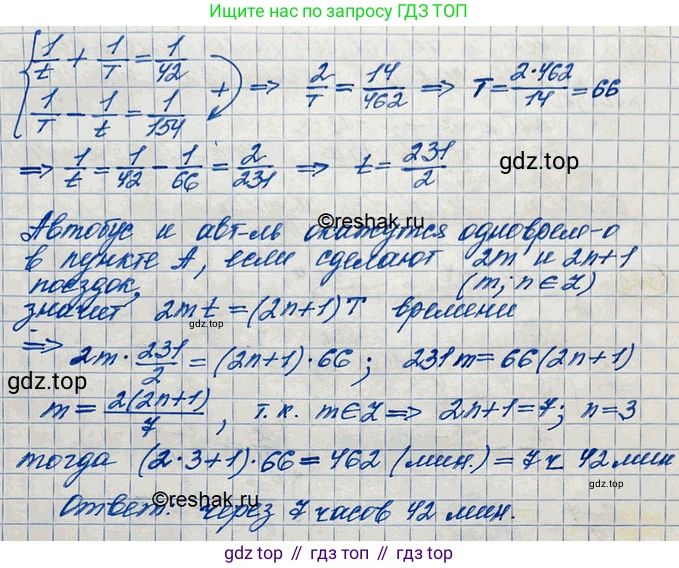 Ищите нас по запросу ГДЗ ТОП
{ 1/t + 1/T = 1/42
1/T - 1/t = 1/154 + ⟹ 2/T = 14/462 ⟹ T = 2·462/14 = 66
⟹ 1/t = 1/42 - 1/66 = 2/231 ⟹ t = 231/2
gdz.top
©reshak.ru
Автобус и авт-ль окажутся одноврем-о
в пункте А, если сделают 2m и 2n+1
поездок, (m; n ∈ Z)
значит 2mt = (2n+1)T времени
gdz.top
⟹ 2m · 231/2 = (2n+1)·66; 231m = 66(2n+1)
gdz.top
m = 2(2n+1)/7, т.к. m∈Z ⟹ 2n+1=7; n=3
тогда (2·3+1)·66 = 462 (мин.) = 7ч 42мин
gdz.top
©reshak.ru
Ответ: через 7 часов 42 мин.
gdz top // гдз топ // gdz.top